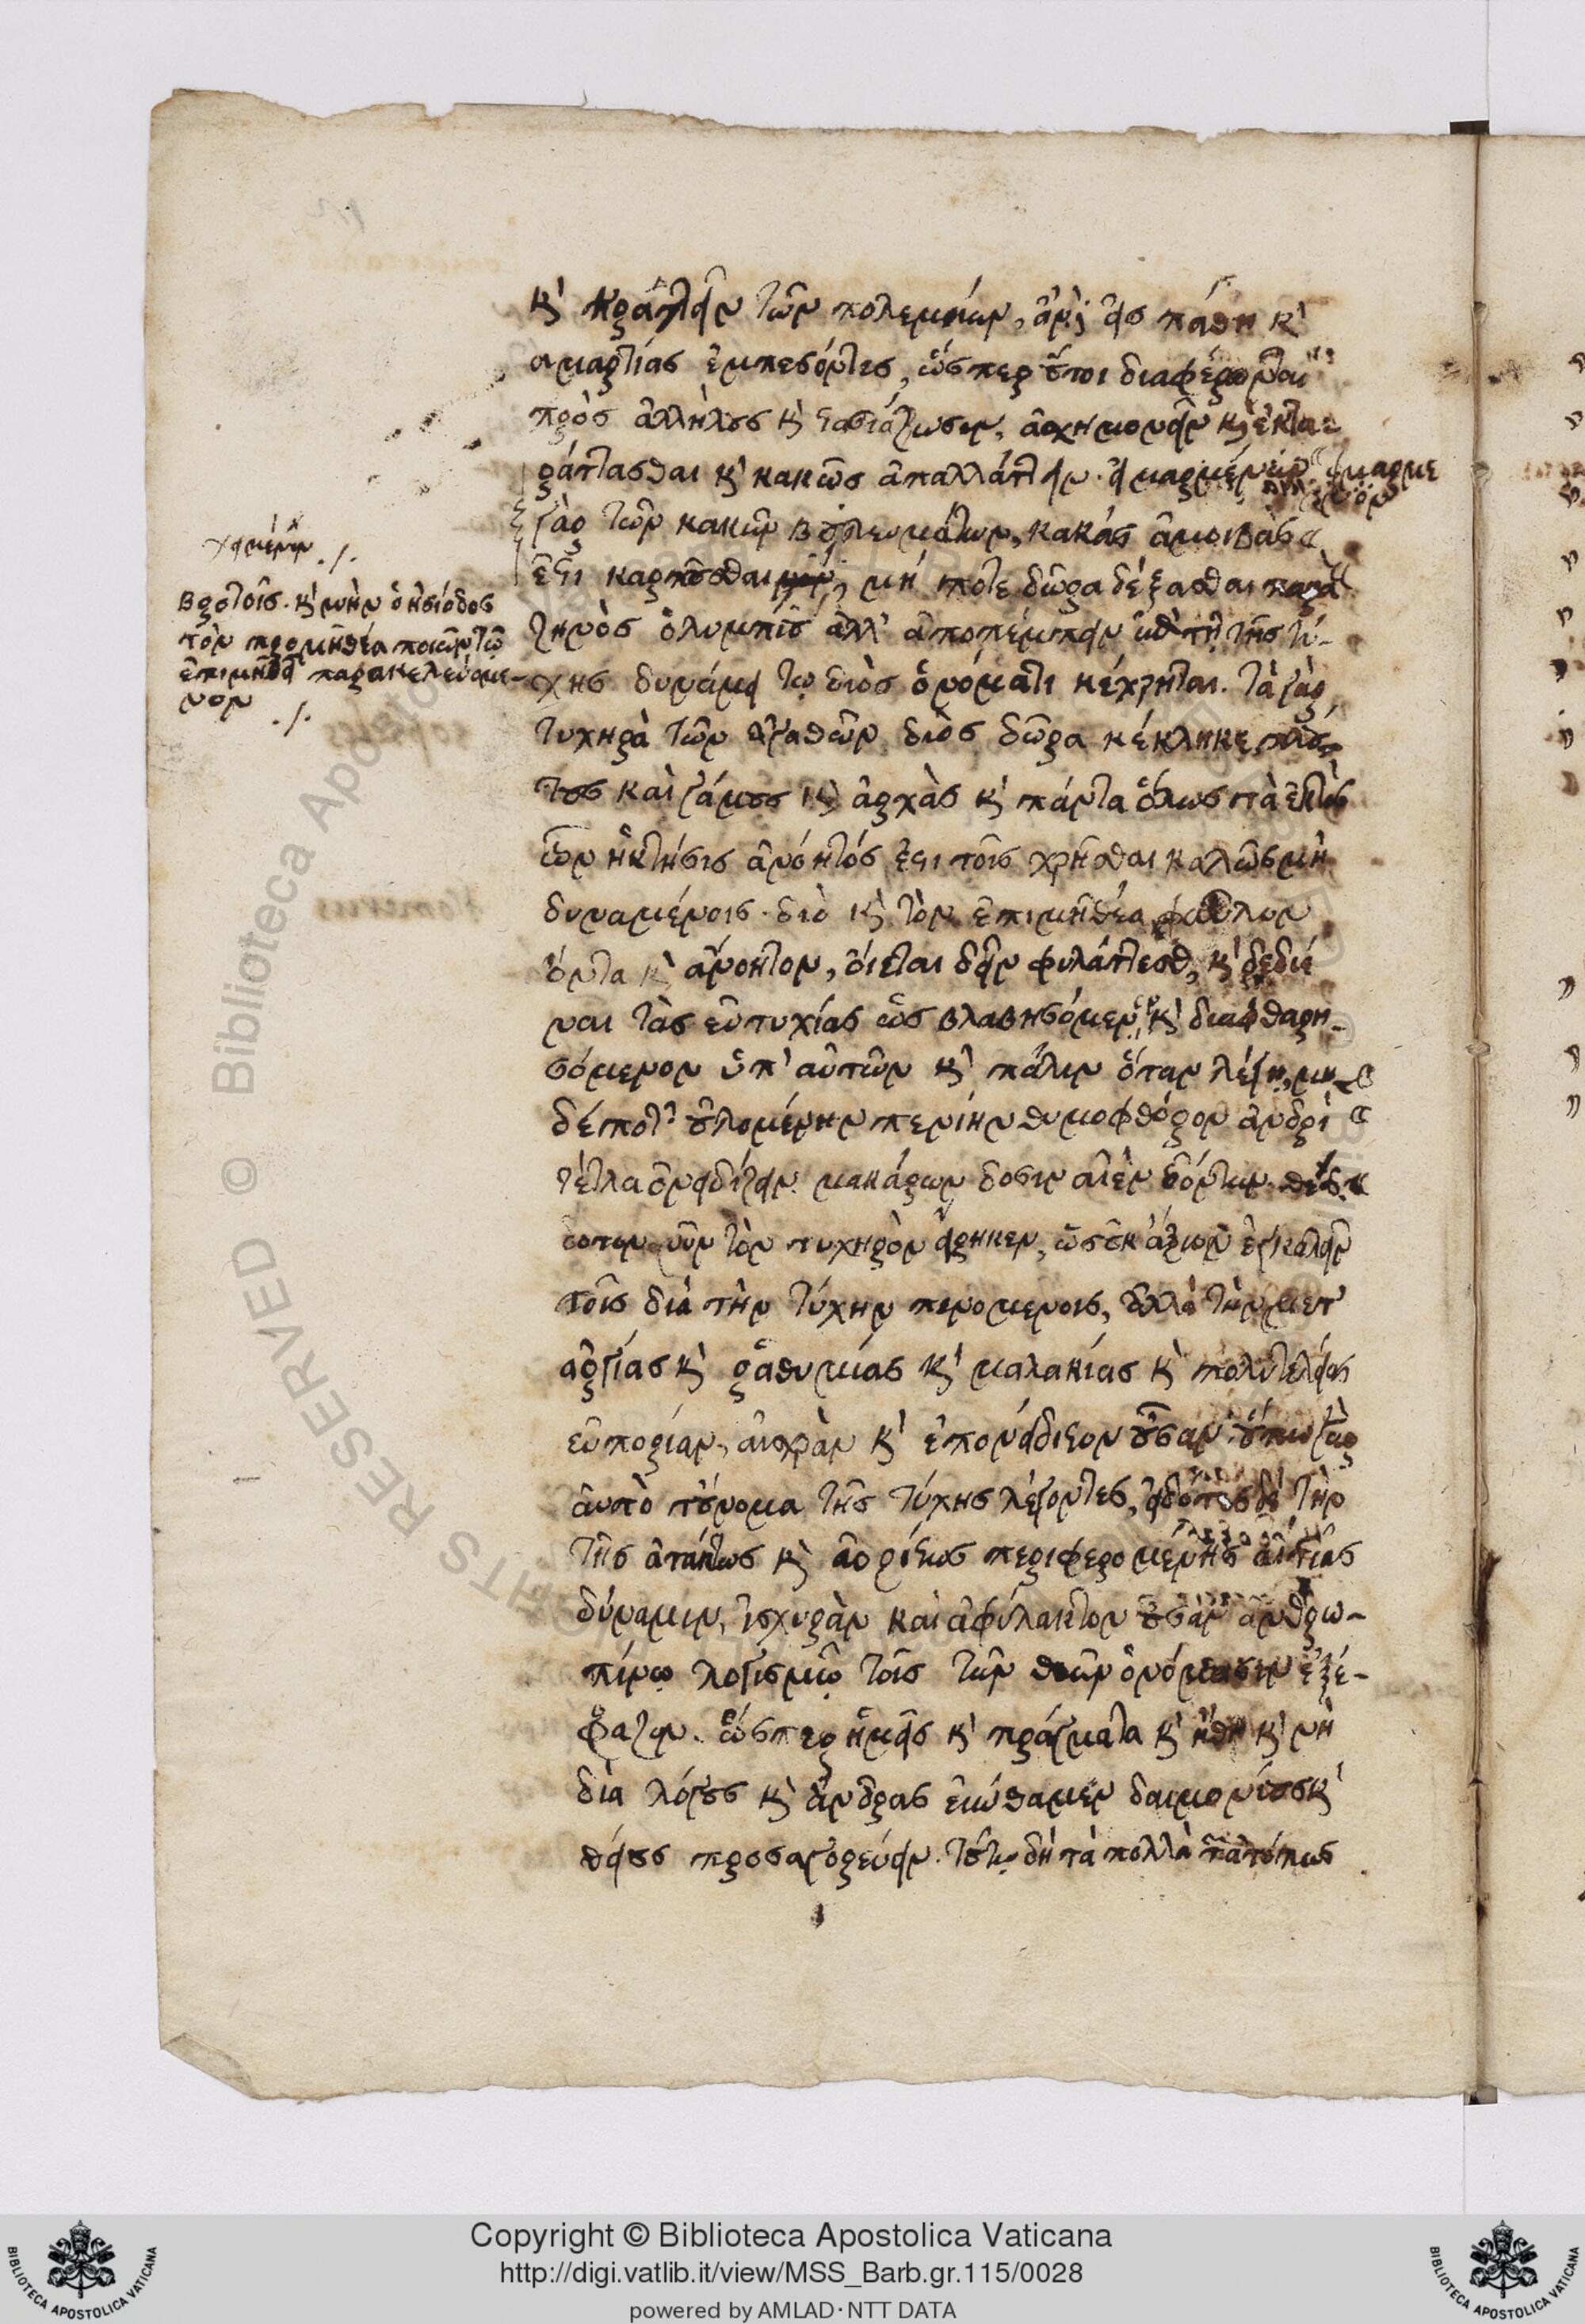 κ' κρατεῖν τῶν πολεμίων, ἂν δ' εἰς πάθη κ'
αμαρτίας ἐμπεσόντες, ὥσπερ οὗτοι διαφέρονται
πρὸς ἀλλήλους κ' στασιάζωσιν, ἀσχημονεῖν κ' ἐκτα-
ράττασθαι κ' κακῶς ἀπαλλάττειν. εἱμαρμένον
εἱμαρμε
νον
γὰρ τῶν κακῶν βουλευμάτων, κακὰς ἀμοιβὰς
ἐστι καρποῦσθαι μή ποτε δῶρα δέξασθαι παρὰ
ζηνὸς ὀλυμπίου ἀλλ' ἀποπέμπειν τῆς τύ-
χης δυνάμει τῷ διὸς ὀνόματι κέχρηται. τὰ γὰρ
τυχηρὰ τῶν ἀγαθῶν διὸς δῶρα κέκληκε, πλού-
τους καὶ γάμους κ' ἀρχὰς κ' πάντα ὅλως τὰ ἐκτὸς
ὧν ἡ κτῆσις ἀνόητός ἐστι τοῖς χρῆσθαι καλῶς μὴ
δυναμένοις. διὸ κ' τὸν ἐπιμηθέα φαῦλον
ὄντα κ' ἀνόητον, οἴεται δεῖν φυλάττεσθ, κ' δεδιέ
ναι τὰς εὐτυχίας ὡς βλαβησόμενον κ' διαφθαρη-
σόμενον ὑπ' αὐτῶν κ' πάλιν ὅταν λέγῃ, μη
δέποτ' οὐλομένην πενίην θυμοφθόρον ἀνδρὶ
τέτλα ὀνειδίζειν μακάρων δοσιν αἰὲν ἐόντων. θεόσ
δοτον νῦν τὸν τυχηρὸν εἴρηκεν, ὡς οὐκ ἄξιον ἐγκαλεῖν
τοῖς διὰ τὴν τύχην πενομενοις, ἀλλὰ τὴν μετ'
ἀργίας κ' ῥαθυμίας κ' μαλακίας κ' πολυτελείας
εὐπορίαν, αἰσχρὰν κ' ἐπονείδιστον οὖσαν. οὔπω γὰρ
αὐτὸ τοὔνομα τῆς τύχης λέγοντες, εἰδότες δὲ τὴν
τῆς ἀτάκτως κ' ἀορίστως περιφερομένης αἰτίας
δύναμιν, ἰσχυρὰν καὶ ἀφύλακτον οὖσαν ἀνθρω-
πίνῳ λογισμῷ τοῖς τῶν θεῶν ὀνόμασιν ἐξέ-
φραζον. ὥσπερ ἡμεῖς κ' πράγματα κ' ἤθη κ' νὴ
δία λόγους κ' ἄνδρας εἰώθαμεν δαιμονίους κ'
θείους προσαγορεύειν. τούτῳ δὴ τὰ πολλὰ τῶν ἀτόπως
χειμένην ./.
βροτοῖς. κ' μὴν ὁ ἡσίοδος
τὸν προμηθέα ποιῶν τῷ
ἐπιμηθεῖ παρακελευόμε-
νον ./.
Copyright © Biblioteca Apostolica Vaticana
http://digi.vatlib.it/view/MSS_Barb.gr.115/0028
powered by AMLAD·NTT DATA
BIBLIOTECA APOSTOLICA VATICANA
BIBLIOTECA APOSTOLICA VATICANA